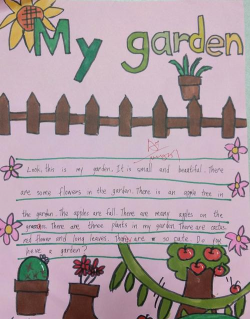 My garden
Look, this is my garden. It is small and beautiful. There
are some flowers in the garden. There is an apple tree in
the garden. The apples are fall. There are many apples on the
There are three plants in my garden. There are cactus
red flower and long leaves. They are so cute. Do you
have a garden?